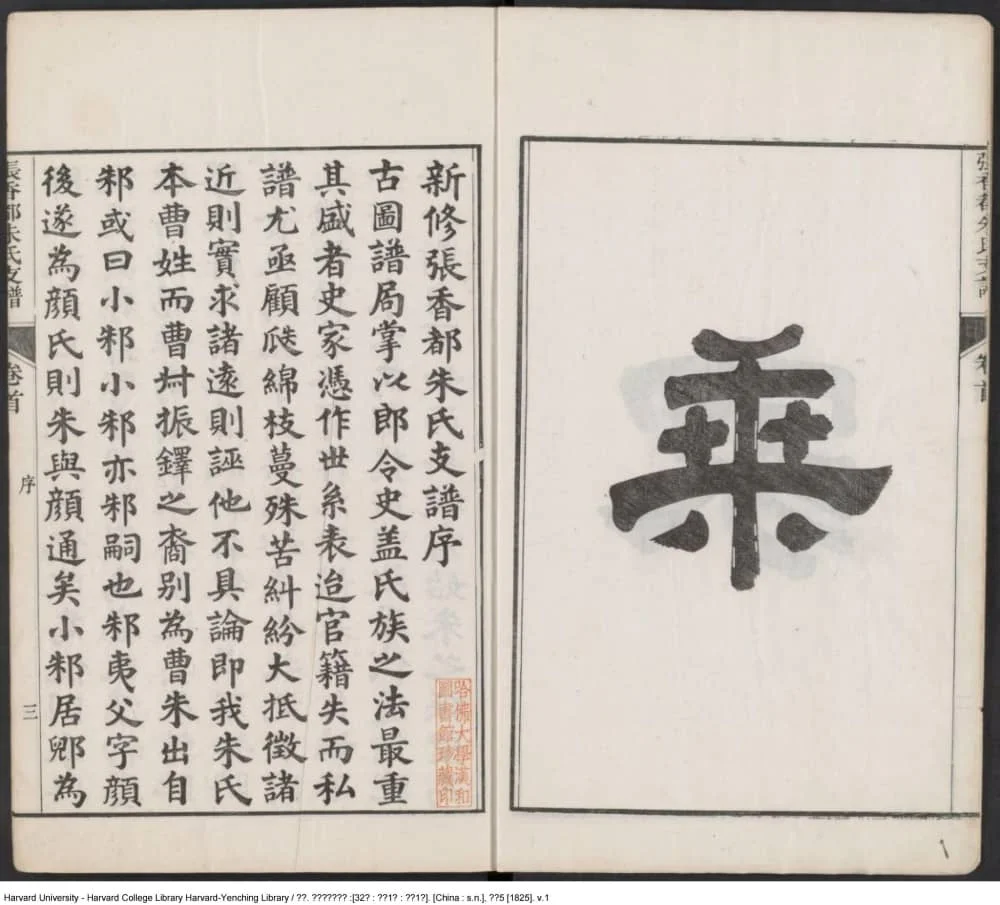 張香都朱氏支譜
卷首
乘
新修張香都朱氏支譜序
哈佛大學漢和
圖書館珍藏印
古圖譜局掌以郎令史盖氏族之法最重
其盛者史家憑作世系表迨官籍失而私
譜尤亟顧瓞綿枝蔓殊苦糾紛大抵徵諸
近則實求諸遠則誣他不具論即我朱氏
本曹姓而曹叔振鐸之裔別為曹朱出自
邾或曰小邾小邾亦邾嗣也邾夷父字顏
後遂為顏氏則朱與顏通矣小邾居郳為
張香都朱氏支譜
卷首
序
三
Harvard University - Harvard College Library Harvard-Yenching Library / ??. ??????? :[32? : ??1? : ??1?]. [China : s.n.], ??5 [1825]. v.1